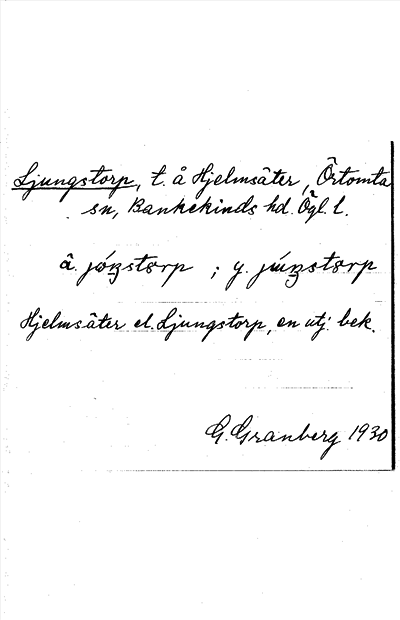 Ljungstorp, t. å Hjelmsäter, Örtomta
sn, Bankekinds hd. Ögl. l.
ä. jóŋstorp ; y. júŋstorp
Hjelmsäter el. Ljungstorp, en utj. bek.
G. Granberg 1930